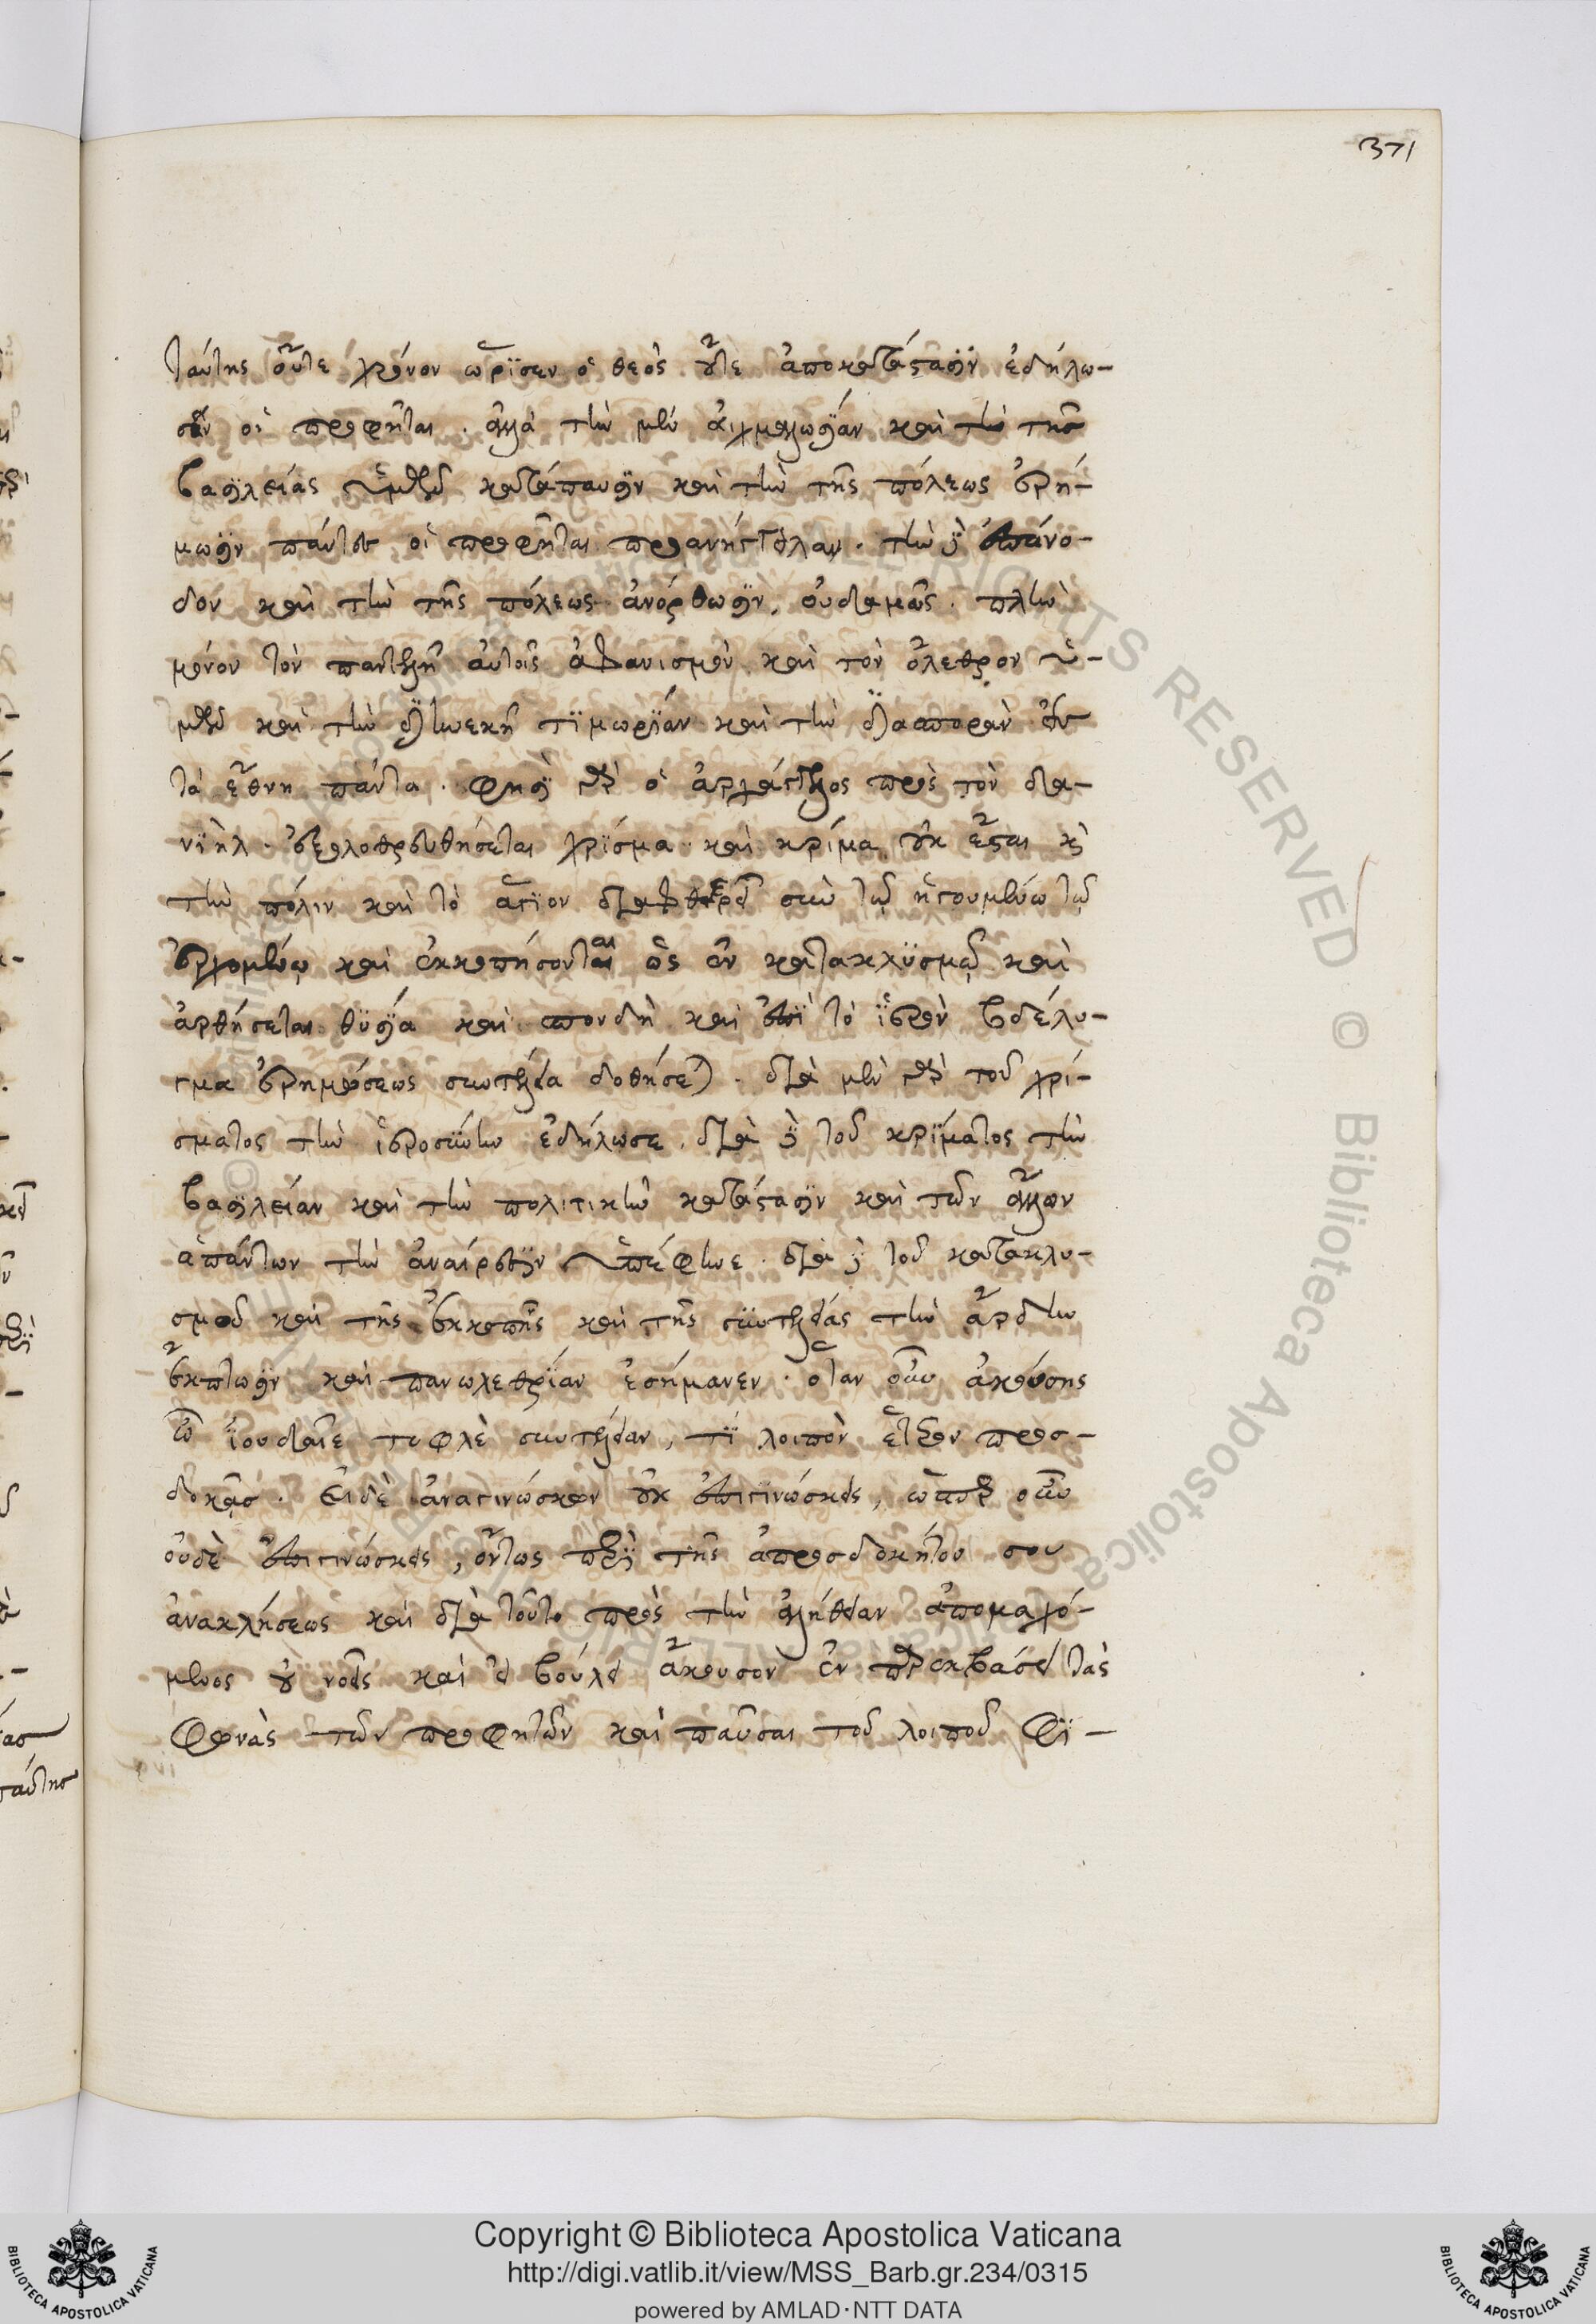 371
ταύτης οὔτε χρόνον ὥρϊσεν ὁ θεὸς οὔτε ἀποκατάστασϊν ἐδήλω-
σαν οἱ προφῆται. ἀλλὰ τὴν μὲν αἰχμαλωσΐαν καὶ τὴν τῆς
βασϊλείας ὑμῶν κατάπαυσιν καὶ τὴν τῆς πόλεως ἐρή-
μωσϊν πάντες οἱ προφῆται προανήγγειλαν. τὴν δὲ ἐπάνο-
δον καὶ τὴν τῆς πόλεως ἀνόρθωσϊν, οὐδαμῶς. πλὴν
μόνον τὸν παντελῆ αὐτοῖς ἀφανισμὸν καὶ τὸν ὄλεθρον ὑ-
μῶν καὶ τὴν διηνεκῆ τϊμωρΐαν καὶ τὴν διασπορὰν εἰς
τὰ ἔθνη πάντα. φησὶ γὰρ ὁ ἀρχάγγελος πρὸς τὸν δα-
νϊὴλ. ἐξολοθρευθήσεται χρϊσμα καὶ κρίμα οὐκ ἔσται καὶ
τὴν πόλιν καὶ τὸ ἅγϊον διαφθερεῖ σὺν τῷ ἡγουμένω τῷ
ἐρχομένῳ καὶ ἐκκοπήσονται ὡς ἐν κατακλϋσμῷ καὶ
ἀρθήσεται θϋσΐα καὶ σπονδὴ καὶ ἐπὶ τὸ ἱερὸν βδέλυ-
γμα ἐρημώσεως συντέλεια δοθήσεται. διὰ μὲν γὰρ τοῦ χρί-
σματος τὴν ἱεροσύνην ἐδήλωσε. διὰ δὲ τοῦ κρΐματος τὴν
βασϊλείαν καὶ τὴν πολιτικὴν κατάστασϊν καὶ τῶν ἄλλων
ἁπάντων τὴν ἀναίρεσϊν ὑπέφηνε. διὰ δὲ τοῦ κατακλυ-
σμοῦ καὶ τῆς ἐκκοπῆς καὶ τῆς συντελείας τὴν ἄρδην
ἔκπτωσϊν καὶ πανωλεθρΐαν ἐσήμανεν. ὅταν οὖν ἀκούσης
ὦ ϊουδαῖε τυφλὲ συντέλειαν, τΐ λοιπὸν ἕτερον προσ-
δοκᾶς. Εἰ δὲ ἀναγινώσκων οὐκ ἐπιγϊνώσκεις, ὥσπερ οὖν
οὐδὲ ἐπιγινώσκεις, ὄντως περὶ τῆς ἀπροσδοκήτου σου
ἀνακλήσεως καὶ διὰ τοῦτο πρὸς τὴν ἀλήθειαν ἀπομαχό-
μενος οὐ νοεῖς καὶ εἰ βούλει ἄκουσον ἐν παρεκβάσει τὰς
φωνὰς τῶν προφητῶν καὶ παῦσαι τοῦ λοιποῦ φϊ-
Copyright © Biblioteca Apostolica Vaticana
http://digi.vatlib.it/view/MSS_Barb.gr.234/0315
powered by AMLAD·NTT DATA